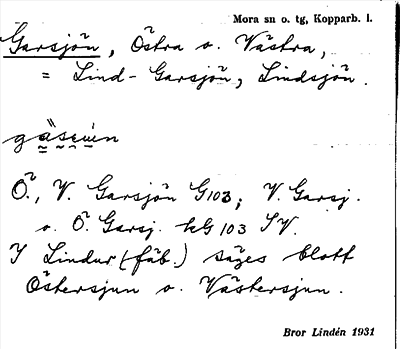 Mora sn o. tg, Kopparb. l.
Garsjön, Östra o. Västra,
= Lind-Garsjön, Lindsjön.
gäsen
Ö., V. Garsjön G103; V. Garsj.
o. Ö. Garsj. kG 103 SV.
I Lindur (fäb.) säges blott
Östersjun o. Västersjun.
Bror Lindén 1931